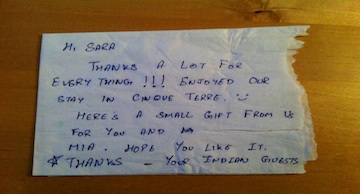 HI SARA
THANKS A LOT FOR
EVERYTHING !!! ENJOYED OUR
STAY IN CINQUE TERRE. :)
HERE'S A SMALL GIFT FROM US
FOR YOU AND
MIA. HOPE YOU LIKE IT.
* THANKS - YOUR INDIAN GUESTS